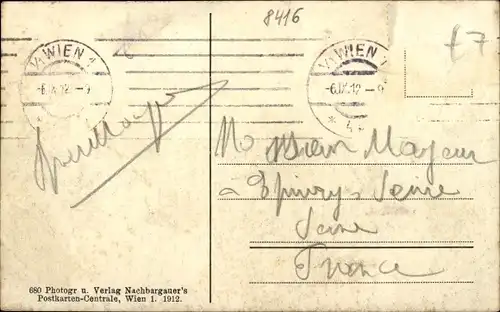 8416
£7
WIEN 1
-6.IX.12-9
WIEN 1
-6.IX.12-9
* 4
Monsieur Mayeur
à Epinay s/ Seine
Seine
France
680 Photogr u. Verlag Nachbargauer's
Postkarten-Centrale, Wien 1. 1912.